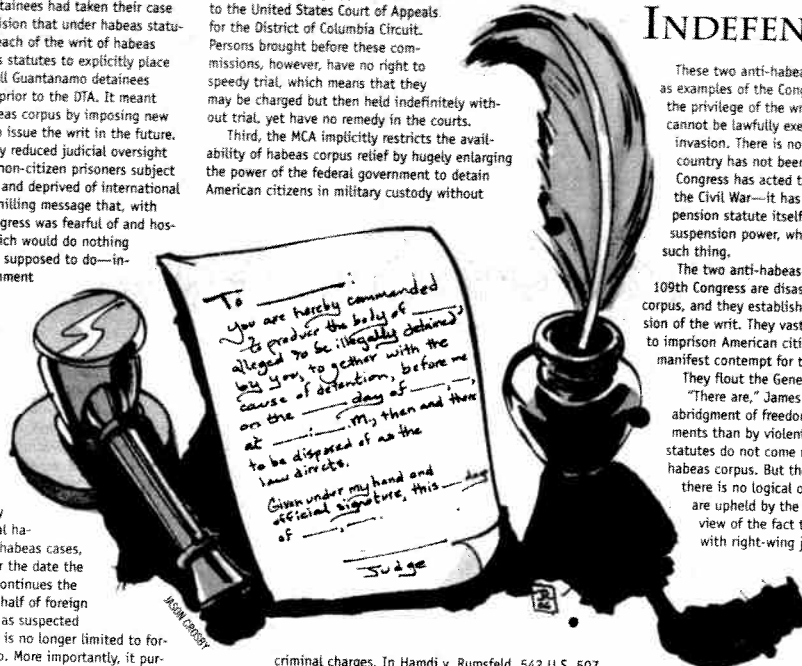 tainees had taken their case
ision that under habeas statu-
each of the writ of habeas
s statutes to explicitly place
ll Guantanamo detainees
prior to the DTA. It meant
eas corpus by imposing new
o issue the writ in the future.
y reduced judicial oversight
non-citizen prisoners subject
and deprived of international
hilling message that, with
gress was fearful of and hos-
ich would do nothing
supposed to do—in-
nment
y
al ha-
habeas cases,
r the date the
ontinues the
half of foreign
as suspected
is no longer limited to for-
o. More importantly, it pur-
to the United States Court of Appeals
for the District of Columbia Circuit.
Persons brought before these com-
missions, however, have no right to
speedy trial, which means that they
may be charged but then held indefinitely with-
out trial, yet have no remedy in the courts.
Third, the MCA implicitly restricts the avail-
ability of habeas corpus relief by hugely enlarging
the power of the federal government to detain
American citizens in military custody without
To ______:
You are hereby commanded
to produce the body of ____,
alleged to be illegally detained
by you, together with the
cause of detention, before me
on the ____ day of ____, __,
at __:__.M., then and there
to be disposed of as the
law directs.
Given under my hand and
official signature, this ___ day
of ___, ___.
Judge
JASON CROSBY
criminal charges. In Hamdi v. Rumsfeld, 542 U.S. 507
INDEFEN
These two anti-habea
as examples of the Cong
the privilege of the wr
cannot be lawfully exe
invasion. There is no
country has not been
Congress has acted t
the Civil War—it has
pension statute itself
suspension power, wh
such thing.
The two anti-habeas
109th Congress are disas
corpus, and they establish
sion of the writ. They vast
to imprison American citi
manifest contempt for t
They flout the Gene
"There are," James
abridgment of freedom
ments than by violent
statutes do not come r
habeas corpus. But th
there is no logical o
are upheld by the
view of the fact t
with right-wing j